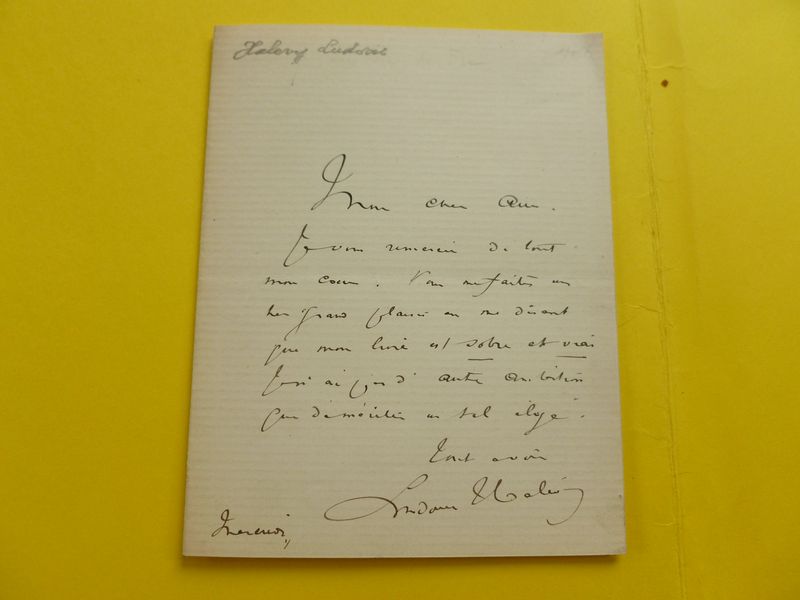 Halevy Ludovic
Mon cher ami.
Je vous remercie de tout
mon coeur. Vous me faites un
très grand plaisir en me disant
que mon livre est sobre et vrai
Je n'ai pas d'autre ambition
que de mériter un tel éloge.
Tout à vous
Ludovic Halévy
Mercredi